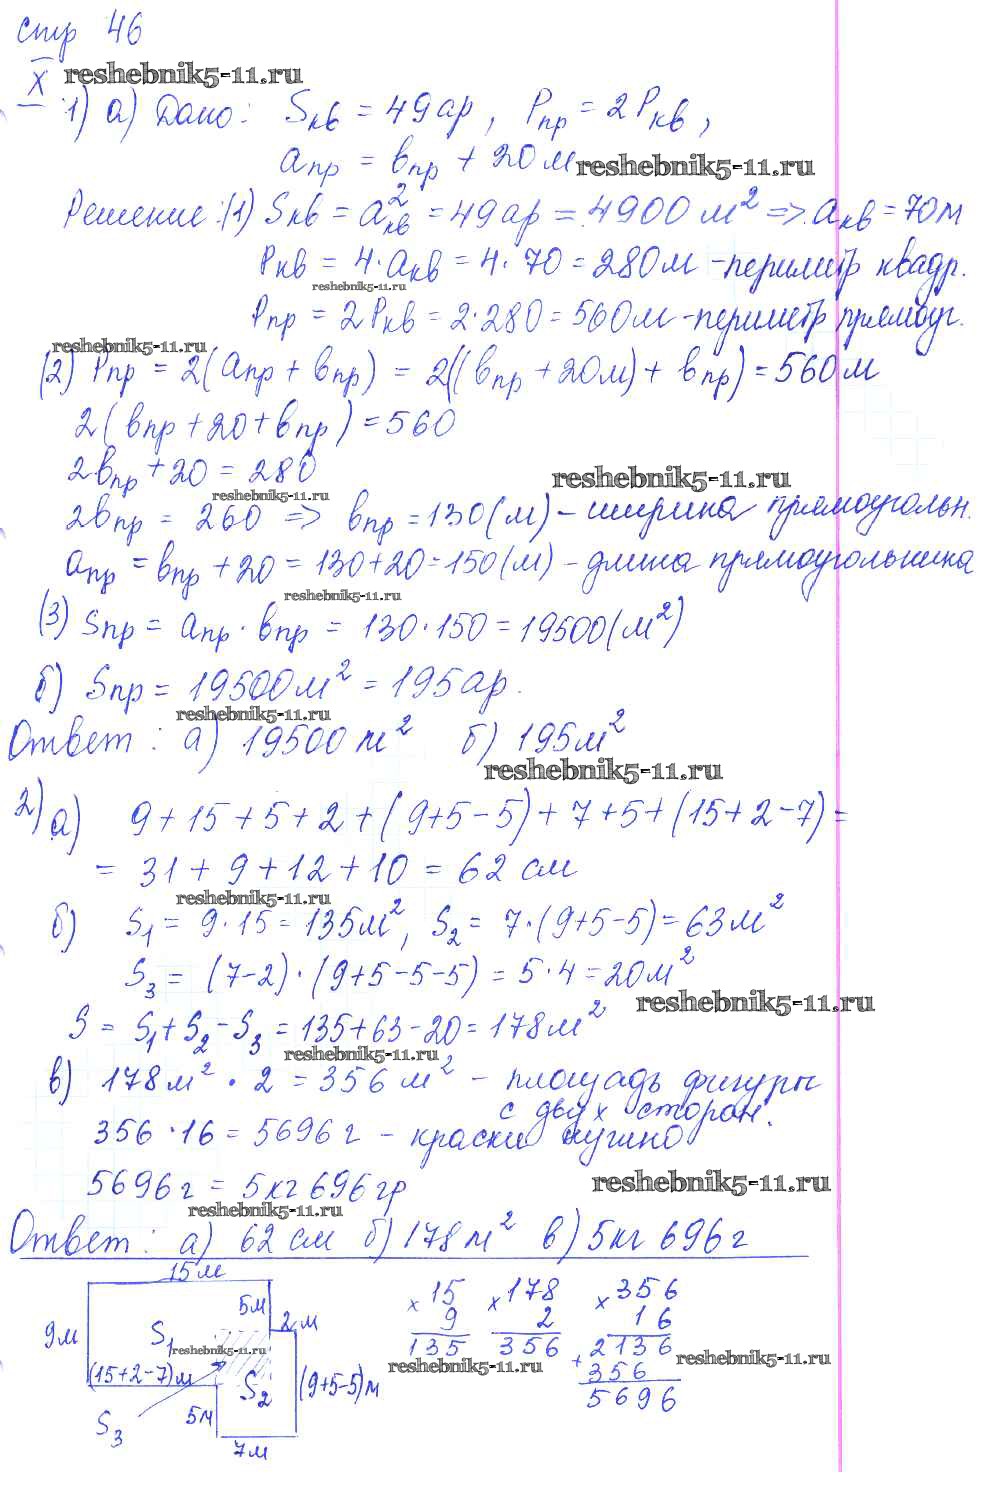 стр 46
X reshebnik5-11.ru
1) а) Дано: Sкв = 49ар, Pпр = 2Pкв,
aпр = bпр + 20 м reshebnik5-11.ru
Решение: (1) Sкв = a²кв = 49ар = 4900 м² => aкв = 70м
Pкв = 4·aкв = 4·70 = 280м - периметр квадр.
reshebnik5-11.ru
Pпр = 2Pкв = 2·280 = 560м - периметр прямоуг.
reshebnik5-11.ru
(2) Pпр = 2(aпр + bпр) = 2((bпр + 20м) + bпр) = 560м
2(bпр + 20 + bпр) = 560
2bпр + 20 = 280
reshebnik5-11.ru
reshebnik5-11.ru
2bпр = 260 => bпр = 130(м) - ширина прямоугольн.
aпр = bпр + 20 = 130+20 = 150(м) - длина прямоугольника
reshebnik5-11.ru
(3) Sпр = aпр · bпр = 130·150 = 19500(м²)
б) Sпр = 19500м² = 195ар.
reshebnik5-11.ru
Ответ: а) 19500 м² б) 195м²
reshebnik5-11.ru
2) а) 9+15+5+2+(9+5-5)+7+5+(15+2-7)=
= 31+9+12+10 = 62 см
reshebnik5-11.ru
б) S₁ = 9·15 = 135м², S₂ = 7·(9+5-5) = 63м²
S₃ = (7-2)·(9+5-5-5) = 5·4 = 20м²
reshebnik5-11.ru
S = S₁+S₂-S₃ = 135+63-20 = 178м²
reshebnik5-11.ru
в) 178м² · 2 = 356м² - площадь фигуры
с двух сторон.
356·16 = 5696г - краски нужно
5696г = 5кг 696гр
reshebnik5-11.ru
reshebnik5-11.ru
Ответ: а) 62 см б) 178м² в) 5кг 696г
15м
9м
5м
2м
S₁
reshebnik5-11.ru
(15+2-7)м
S₂
(9+5-5)м
S₃
5м
7м
×15
9
135
×178
2
356
reshebnik5-11.ru
×356
16
2136
reshebnik5-11.ru
+356
5696